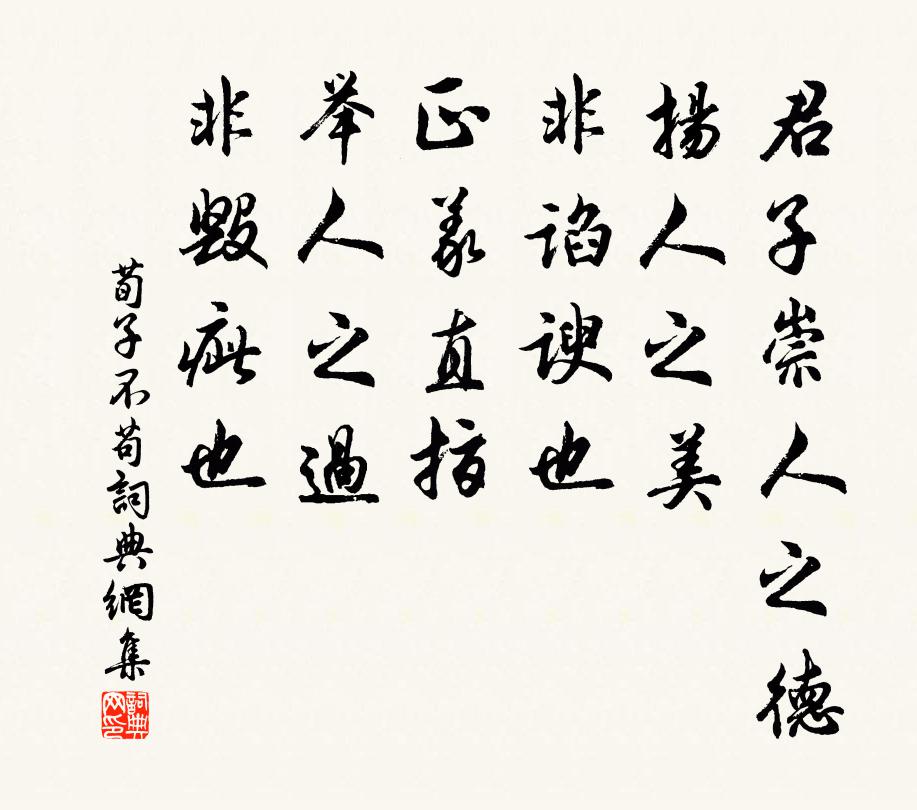 君子崇人之德
揚人之美
非谄谀也
正義直指
举人之過
非毀疵也
荀子不苟詞典網集
詞典网印